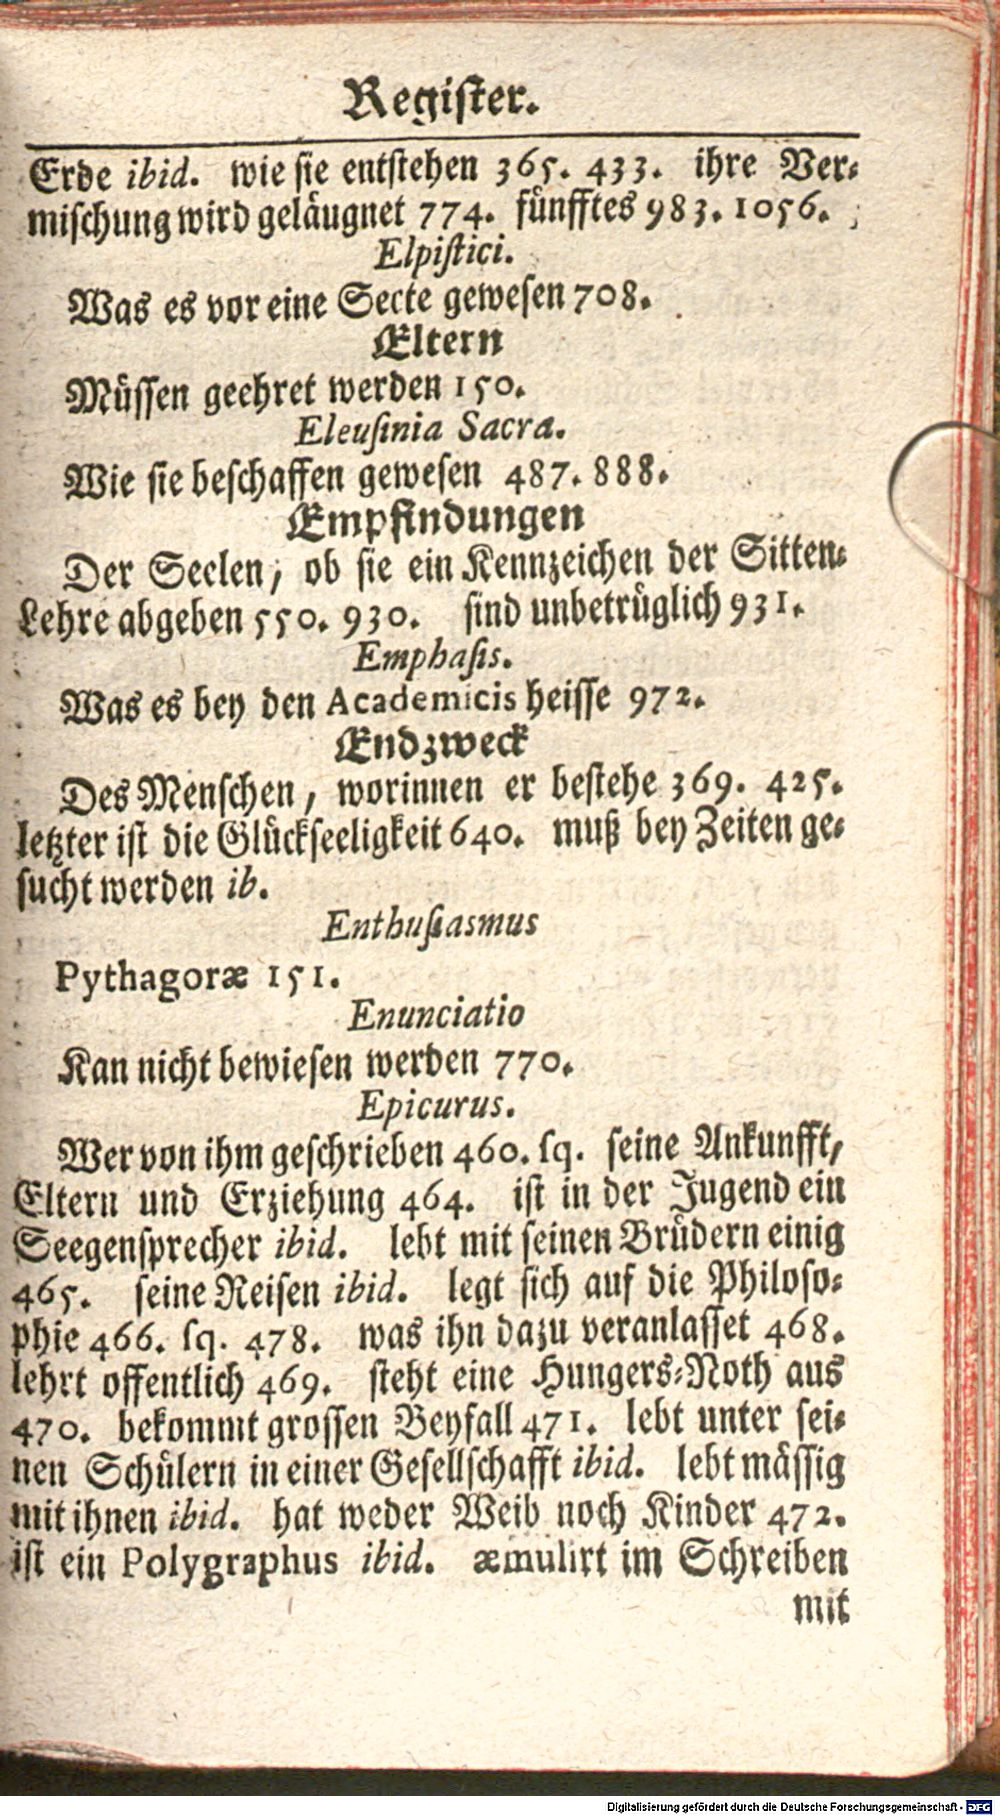 Register.
Erde ibid. wie sie entstehen 365. 433. ihre Ver-
mischung wird geläugnet 774. fünfftes 983. 1056.
Elpistici.
Was es vor eine Secte gewesen 708.
Eltern
Müssen geehret werden 150.
Eleusinia Sacra.
Wie sie beschaffen gewesen 487. 888.
Empfindungen
Der Seelen, ob sie ein Kennzeichen der Sitten-
Lehre abgeben 550. 930. sind unbetrüglich 931.
Emphasis.
Was es bey den Academicis heisse 972.
Endzweck
Des Menschen, worinnen er bestehe 369. 425.
letzter ist die Glückseeligkeit 640. muß bey Zeiten ge-
sucht werden ib.
Enthusiasmus
Pythagoræ 151.
Enunciatio
Kan nicht bewiesen werden 770.
Epicurus.
Wer von ihm geschrieben 460. sq. seine Ankunfft,
Eltern und Erziehung 464. ist in der Jugend ein
Seegensprecher ibid. lebt mit seinen Brüdern einig
465. seine Reisen ibid. legt sich auf die Philoso-
phie 466. sq. 478. was ihn dazu veranlasset 468.
lehrt offentlich 469. steht eine Hungers-Noth aus
470. bekommt grossen Beyfall 471. lebt unter sei-
nen Schülern in einer Gesellschafft ibid. lebt mässig
mit ihnen ibid. hat weder Weib noch Kinder 472.
ist ein Polygraphus ibid. æmulirt im Schreiben
mit
Digitalisierung gefördert durch die Deutsche Forschungsgemeinschaft - DFG